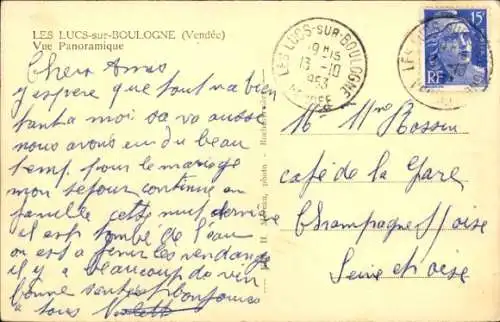 LES LUCS-sur-BOULOGNE (Vendée)
Vue Panoramique
Chers Amis
j'y espère que tout va bien
tant a moi sa va aussi
nous avons eu du beau
temp pour le mariage
mon sejour continue en
famille cette nuit dernière
il est tombé de l'eau
on est a finir les vendange
il y a beaucoup de vin
bonne santé bonjour
a tous
LES LUCS-SUR-BOULOGNE
9 H 15
13-10
1953
VENDÉE
15F
RF
Mr Mme Bossu
café de la Gare
Champagne s/oise
Seine et oise